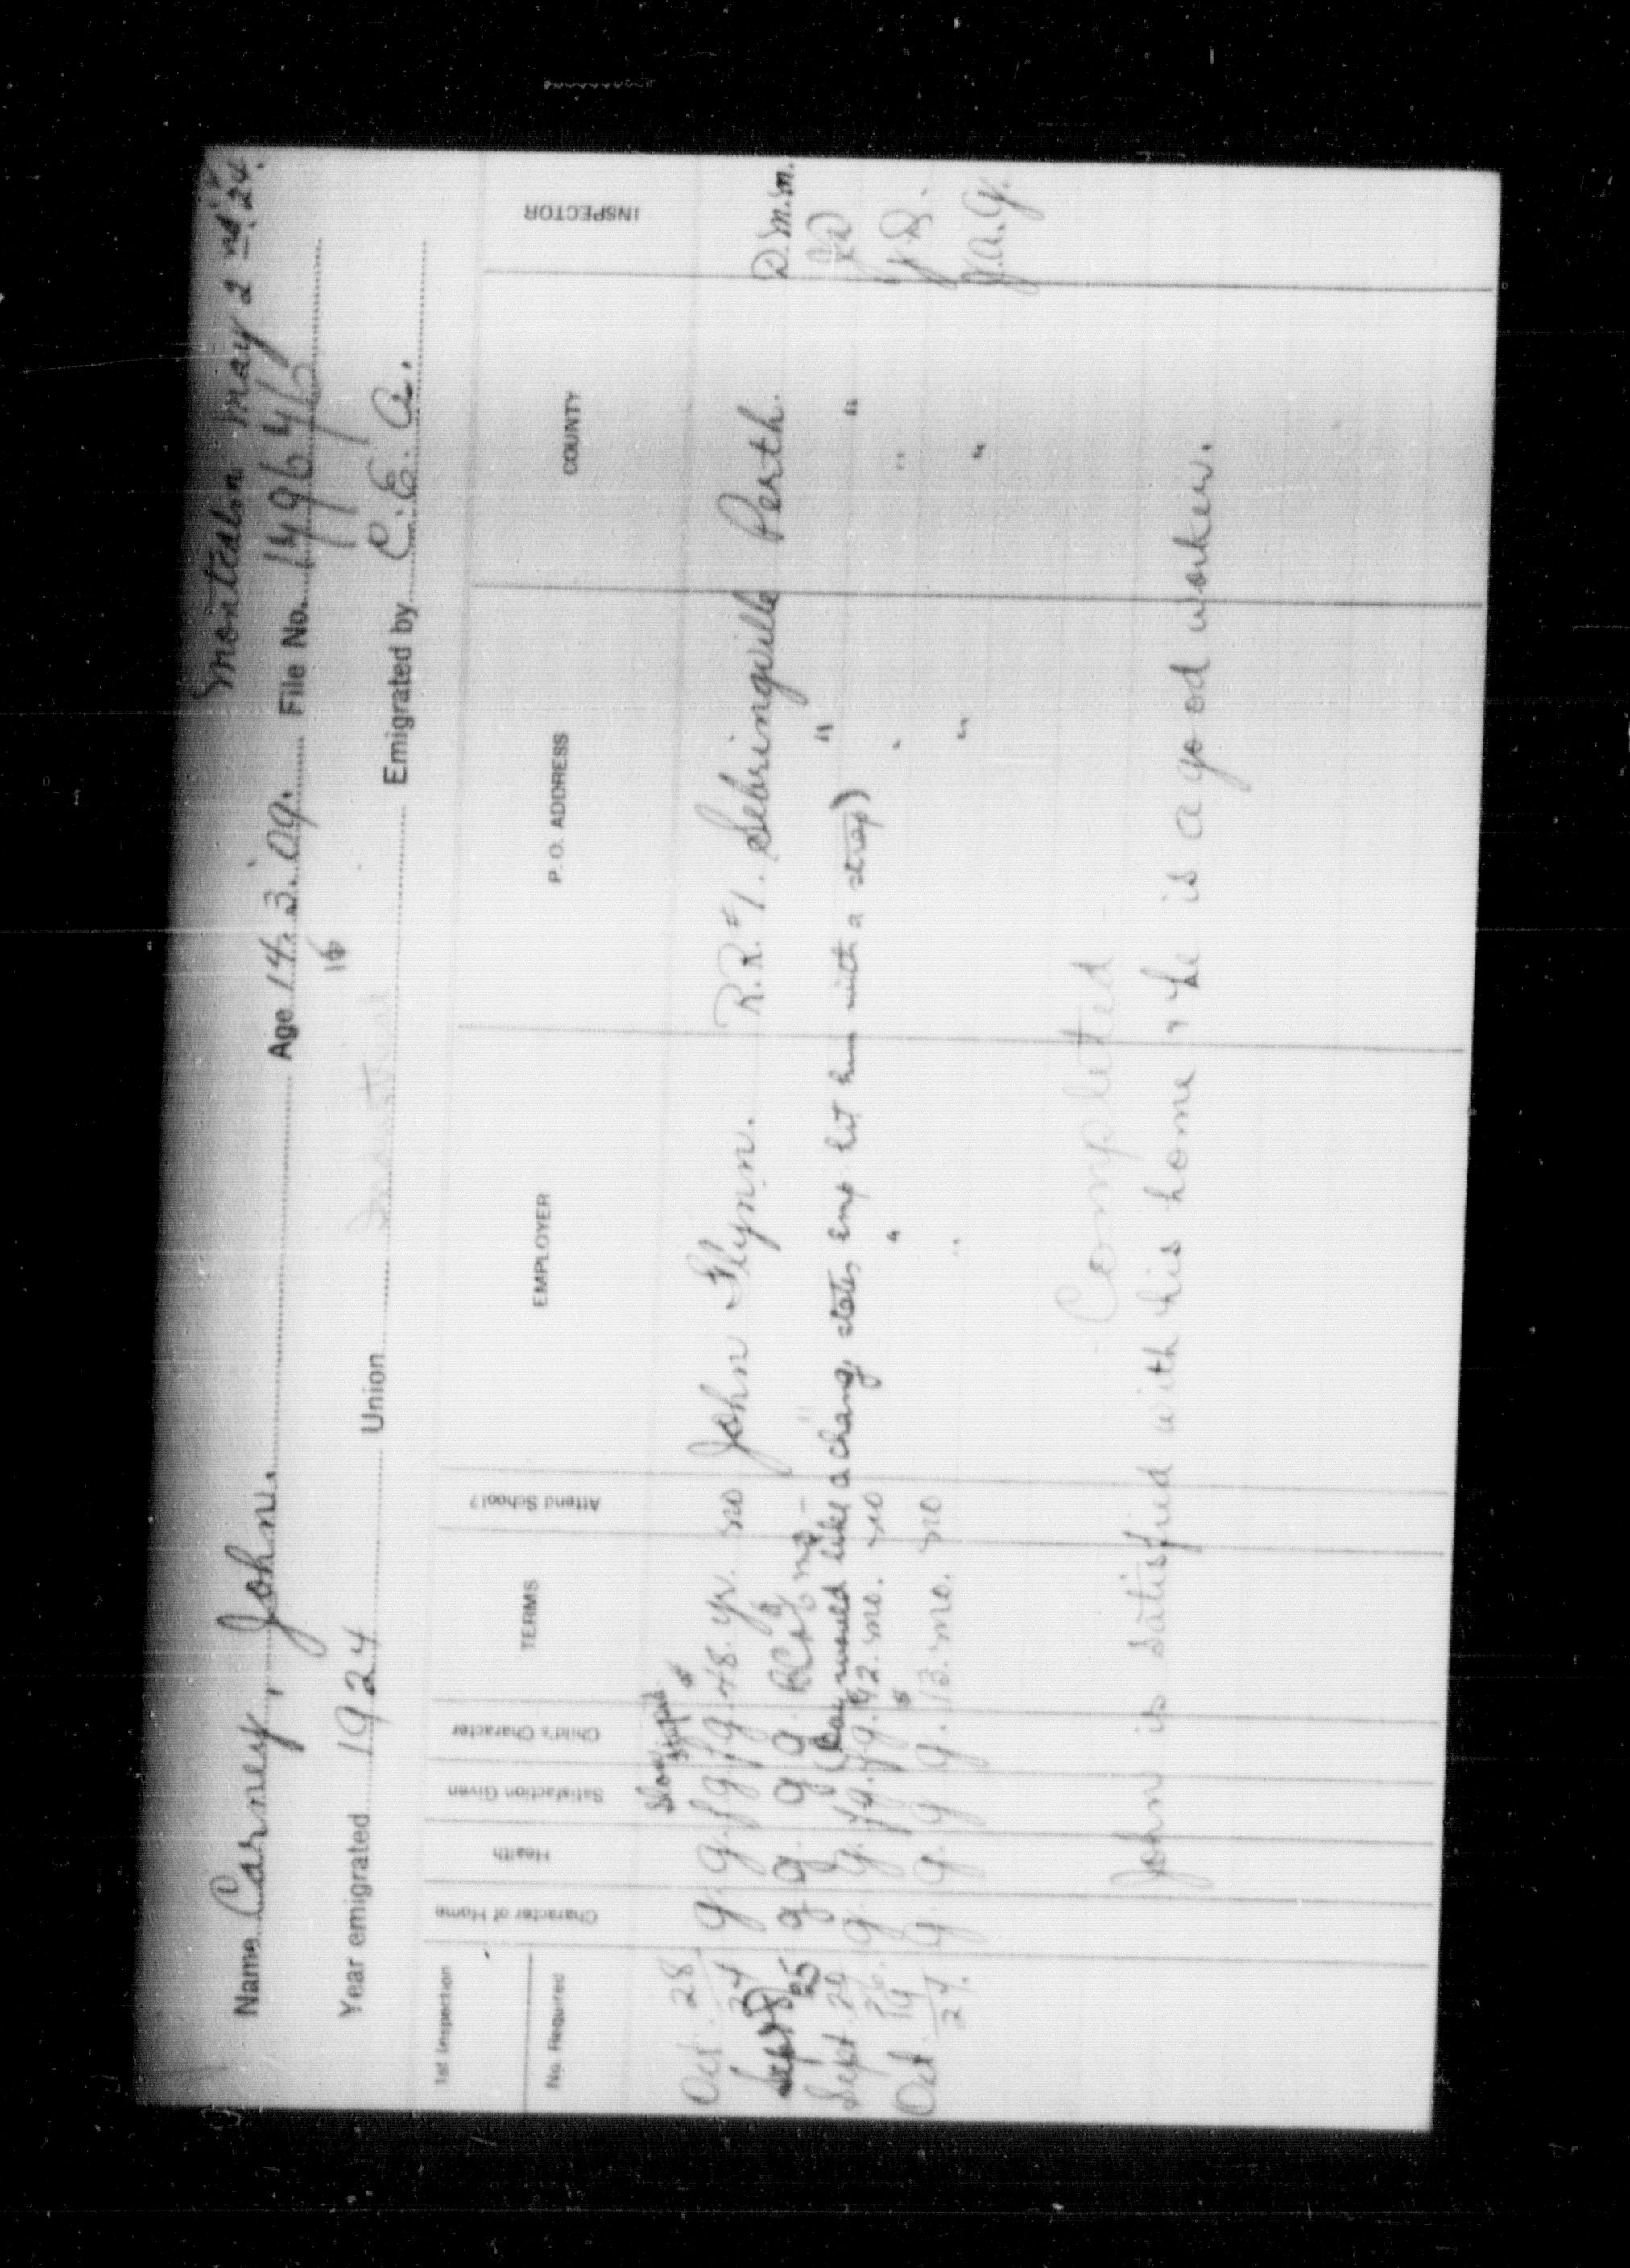 Montcalm May 2nd 24.
Name Carney, John. Age 14. 3. 09. File No.
16
Year emigrated 1924 Union Emigrated by C. E. A.
1st Inspection
No. Required
Character of Home
Health
Satisfaction Given
Child's Character
TERMS
Attend School?
EMPLOYER
P. O. ADDRESS
COUNTY
INSPECTOR
Slow stupid
Oct. 28/24 g. g. fg. fg. $48. yr. no John Flynn. R.R. #1. Sebringville Perth. D. M. M.
Sept 25 g g g g " "
(Boy would like a change, states emp. hit him with a strap)
Sept. 29 26. g. g. fg. fg. $ mo. no " " "
Oct. 19/27. g. g. g. g. $13. mo. no " " " J. A. G.
Completed
John is satisfied with his home & he is a good worker.